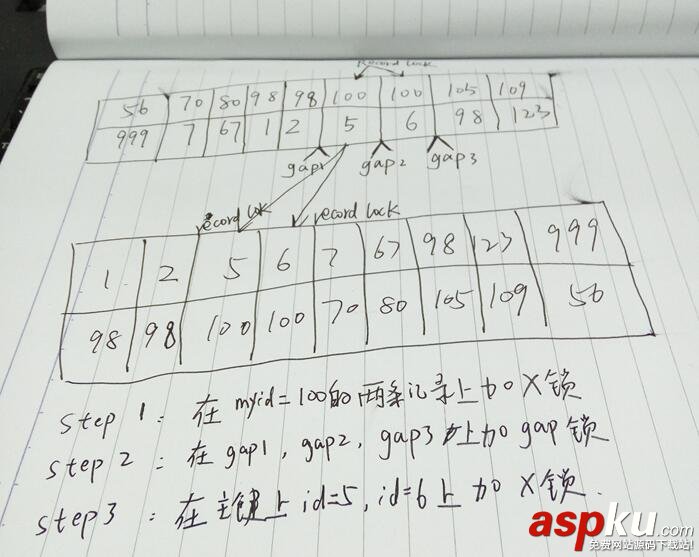 Record lock
56 70 80 98 98 100 100 105 109
999 7 67 1 2 5 6 98 123
gap1 gap2 gap3
record lock record lock
1 2 5 6 7 67 98 123 999
98 98 100 100 70 80 105 109 56
step 1: 在 myid=100的两条记录上加X锁
step 2: 在gap1, gap2, gap3上加gap锁
step3: 在主键上id=5, id=6上加X锁.
aspku.com
免费网站源码下载站!